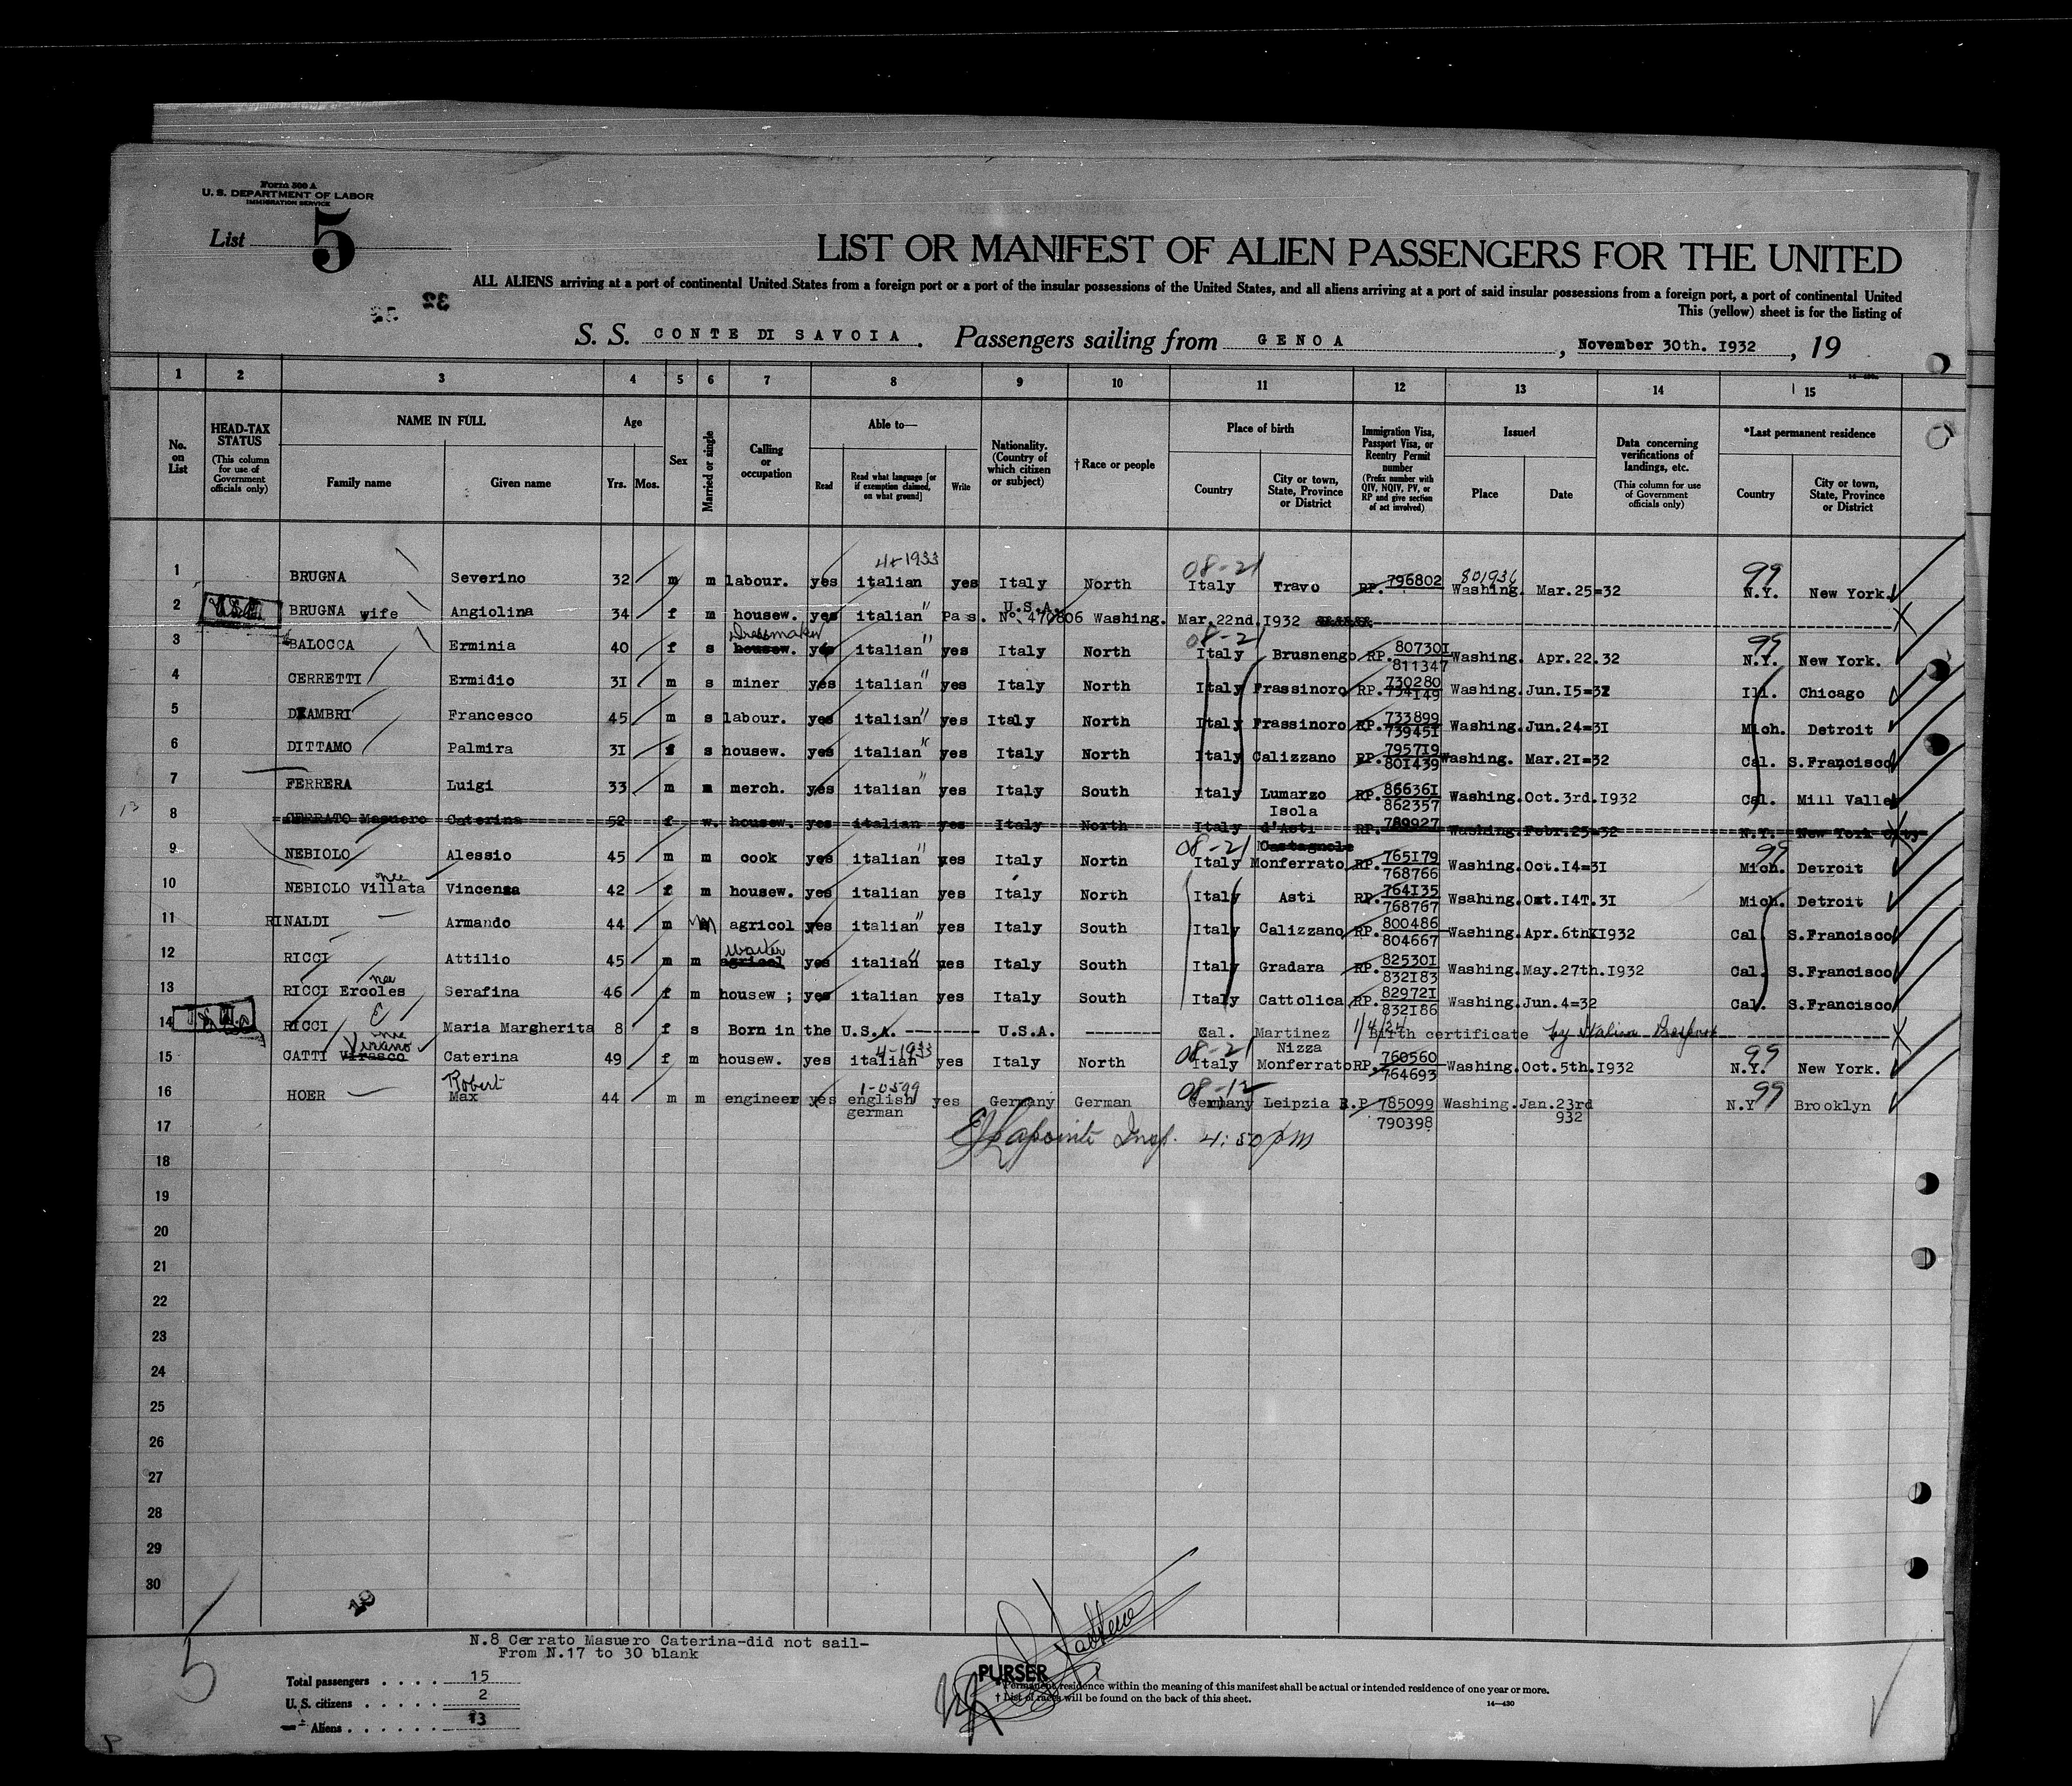 Form 500 A
U. S. DEPARTMENT OF LABOR
IMMIGRATION SERVICE
List 5
LIST OR MANIFEST OF ALIEN PASSENGERS FOR THE UNITED
ALL ALIENS arriving at a port of continental United States from a foreign port or a port of the insular possessions of the United States, and all aliens arriving at a port of said insular possessions from a foreign port, a port of continental United
This (yellow) sheet is for the listing of
S. S. CONTE DI SAVOIA. Passengers sailing from GENOA, November 30th. 1932, 19
1 2 3 4 5 6 7 8 9 10 11 12 13 14 15
No. on List
HEAD-TAX STATUS
(This column for use of Government officials only)
NAME IN FULL
Family name Given name
Age
Yrs. Mos.
Sex
Married or single
Calling or occupation
Able to—
Read
Read what language [or if exemption claimed, on what ground]
Write
Nationality. (Country of which citizen or subject)
†Race or people
Place of birth
Country
City or town, State, Province or District
Immigration Visa, Passport Visa, or Reentry Permit number
(Prefix number with QIV, NQIV, PV, or RP and give section of act involved)
Issued
Place Date
Data concerning verifications of landings, etc.
(This column for use of Government officials only)
*Last permanent residence
Country
City or town, State, Province or District
4-1933 08-21 801936 99
1 BRUGNA Severino 32 m m labour. yes italian yes Italy North Italy Travo RP. 796802 Washing. Mar.25=32 N.Y. New York.
2 BRUGNA wife Angiolina 34 f m housew. yes italian " Pas. No. 470806 U.S.A. Washing. Mar.22nd.1932
Dressmaker 08-21 99
3 BALOCCA Erminia 40 f s housew. yes italian " yes Italy North Italy Brusnengo RP. 807301 811347 Washing. Apr.22.32 N.Y. New York.
4 CERRETTI Ermidio 31 m s miner yes italian " yes Italy North Italy Frassinoro RP. 730280 734149 Washing. Jun.15=32 Ill. Chicago
5 DIAMBRI Francesco 45 m s labour. yes italian " yes Italy North Italy Frassinoro RP. 733899 739451 Washing. Jun.24=31 Mich. Detroit
6 DITTAMO Palmira 31 f s housew. yes italian " yes Italy North Italy Calizzano RP. 795719 801439 Washing. Mar.21=32 Cal. S.Francisco
7 FERRERA Luigi 33 m m merch. yes italian " yes Italy South Italy Lumarzo RP. 866361 862357 Washing. Oct.3rd.1932 Cal. Mill Valley
13
8 CERRATO Masuero Caterina 52 f w. housew. yes italian yes Italy North Italy Isola d'Asti RP. 789927 Washing. Febr.25=32 N.Y. New York City
08-21 Castagnole 99
9 NEBIOLO Alessio 45 m m cook yes italian " yes Italy North Italy Monferrato RP. 765179 768766 Washing. Oct.14=31 Mich. Detroit
10 NEBIOLO nee Villata Vincenza 42 f m housew. yes italian yes Italy North Italy Asti RP. 764135 768767 Wsahing. Oct.14T.31 Mich. Detroit
11 RINALDI Armando 44 m m agricol yes italian " yes Italy South Italy Calizzano RP. 800486 804667 Washing. Apr.6th.1932 Cal. S.Francisco
Waiter
12 RICCI Attilio 45 m m agricol yes italian " yes Italy South Italy Gradara RP. 825301 832183 Washing. May.27th.1932 Cal. S.Francisco
13 RICCI nee Ercoles Serafina 46 f m housew ; yes italian yes Italy South Italy Cattolica RP. 829721 832186 Washing. Jun.4=32 Cal. S.Francisco
14 RICCI E Maria Margherita 8 f s Born in the U.S.A. -------- U.S.A. -------- Cal. Martinez 1/4/24 Birth certificate by Italian Passport
4-1933 08-21 99
15 CATTI nee Virano Virasco Caterina 49 f m housew. yes italian yes Italy North Italy Nizza Monferrato RP. 760560 764693 Washing. Oct.5th.1932 N.Y. New York.
1-0599 08-12 99
16 HOER Robert Max 44 m m engineer yes english german yes Germany German Germany Leipzia R.P 785099 790398 Washing. Jan.23rd 932 N.Y Brooklyn
17 Lapointe Insp. 4:50 pm
18
19
20
21
22
23
24
25
26
27
28
29
30
5
N.8 Cerrato Masuero Caterina-did not sail-
From N.17 to 30 blank
Total passengers . . . . 15
U. S. citizens . . . . . 2
Aliens . . . . . . 13
PURSER
*Permanent residence within the meaning of this manifest shall be actual or intended residence of one year or more.
†List of races will be found on the back of this sheet.
14—430